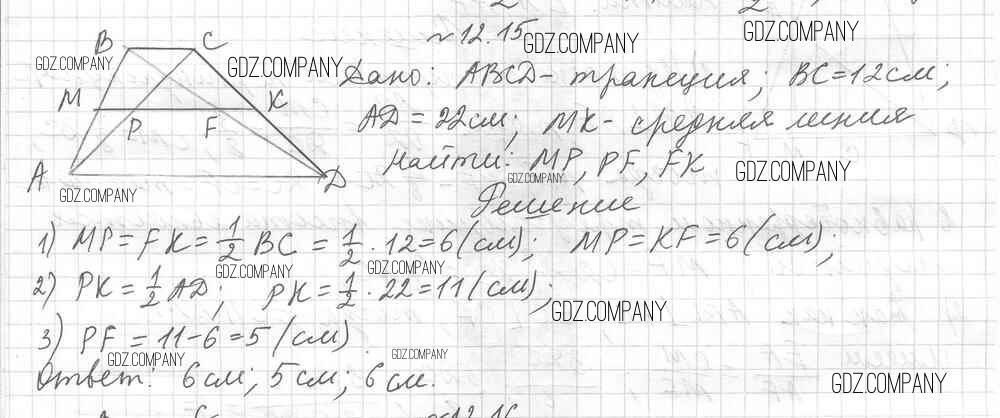 №12.15
B C
Дано: ABCD - трапеция; BC=12см;
M P F K
AD=22см; MK - средняя линия
Найти: MP, PF, FK
A D
Решение
1) MP=FK=1/2 BC=1/2·12=6(см); MP=KF=6(см);
2) PK=1/2 AD; PK=1/2·22=11(см);
3) PF=11-6=5(см)
Ответ: 6см; 5см; 6см.
GDZ.COMPANY
GDZ.COMPANY
GDZ.COMPANY
GDZ.COMPANY
GDZ.COMPANY
GDZ.COMPANY
GDZ.COMPANY
GDZ.COMPANY
GDZ.COMPANY
GDZ.COMPANY
GDZ.COMPANY
GDZ.COMPANY
GDZ.COMPANY